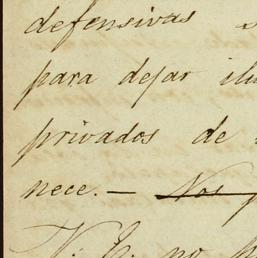 defensivas
para dejar
privados de
nece. — Nos
V. E. no